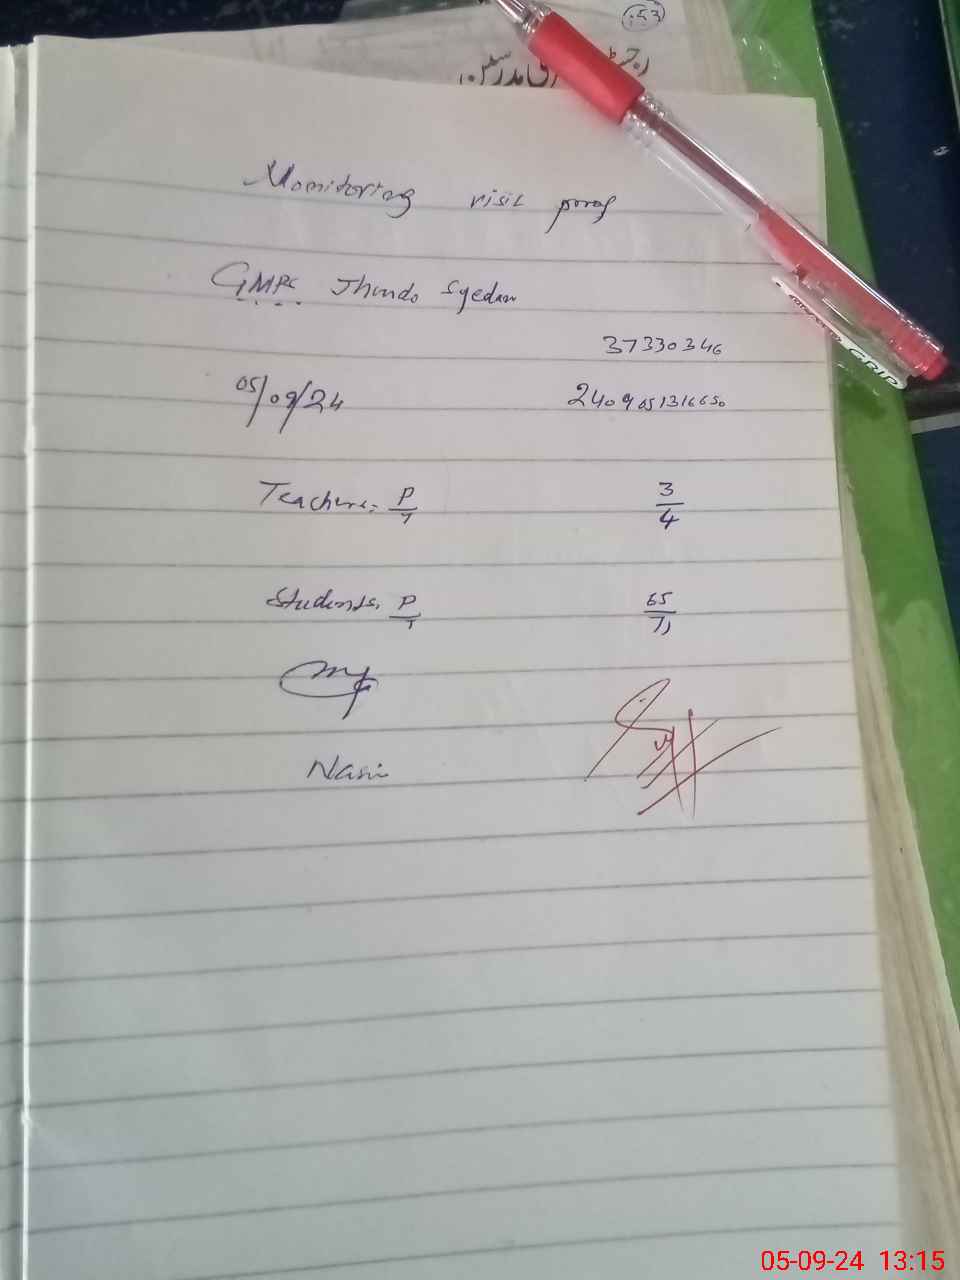 53
Monitoring visit proof
GMPS Jhando Syedan
37330346
05/09/24
2409051316650
Teachers: P/T 3/4
Students: P/T 65/71
GRIP
05-09-24 13:15